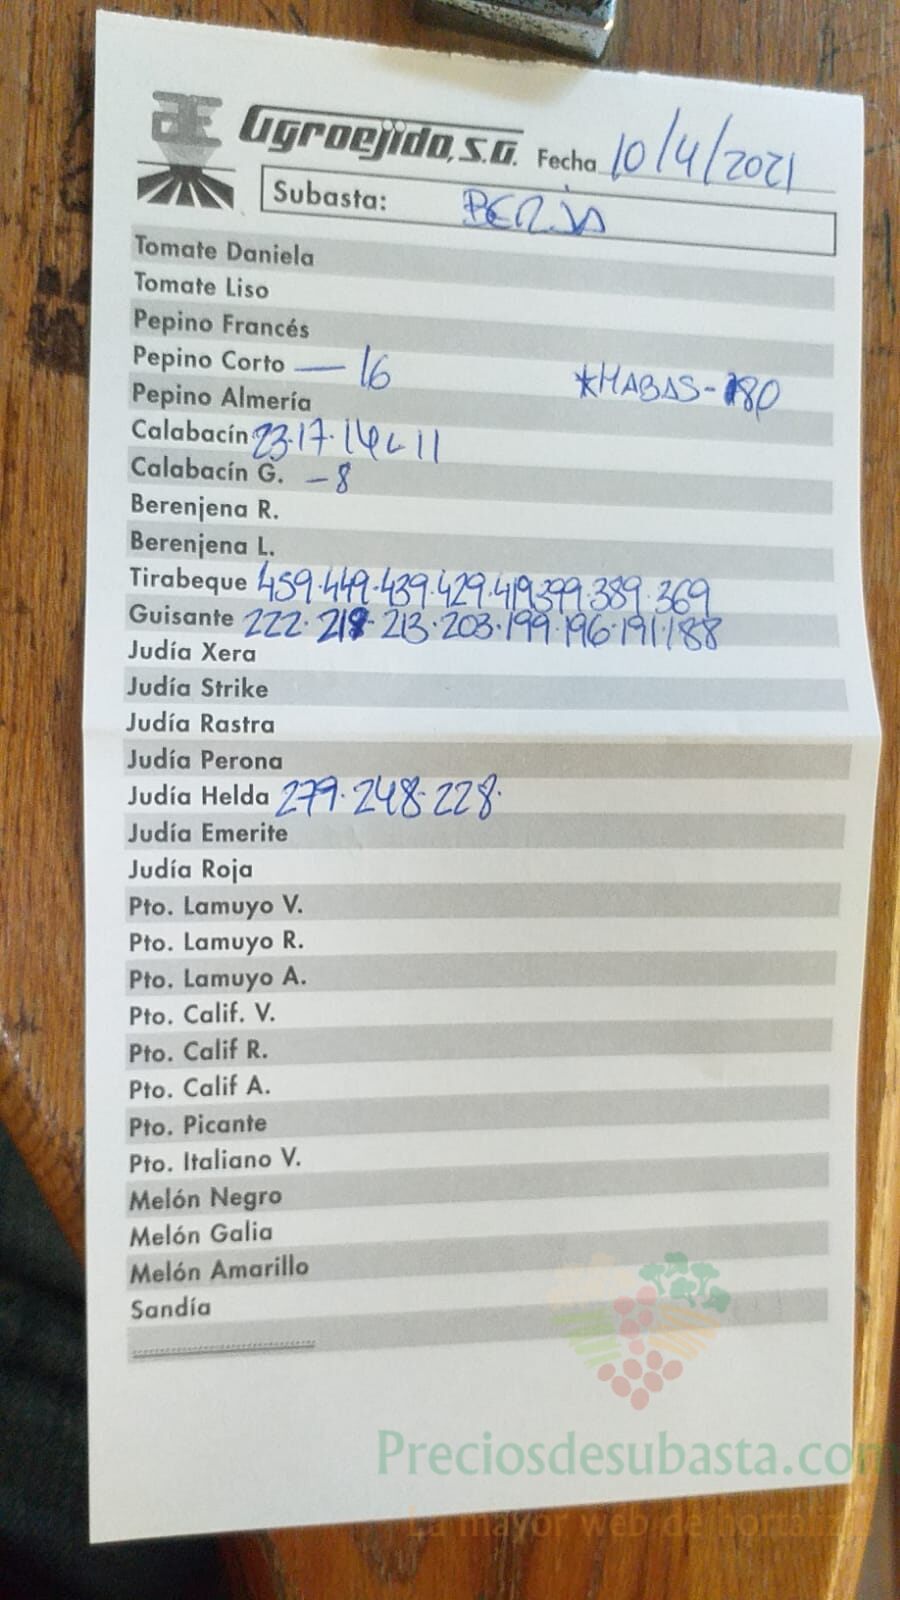 Agroejido, S.A. Fecha 10/4/2021
Subasta: BERJA
Tomate Daniela
Tomate Liso
Pepino Francés
Pepino Corto — 16
*HABAS - 80
Pepino Almería
Calabacín 23·17·14 11
Calabacín G. - 8
Berenjena R.
Berenjena L.
Tirabeque 459·449·439·429·419·399·389·369
Guisante 222·218·213·203·199·196·191·188
Judía Xera
Judía Strike
Judía Rastra
Judía Perona
Judía Helda 279·248·228·
Judía Emerite
Judía Roja
Pto. Lamuyo V.
Pto. Lamuyo R.
Pto. Lamuyo A.
Pto. Calif. V.
Pto. Calif R.
Pto. Calif A.
Pto. Picante
Pto. Italiano V.
Melón Negro
Melón Galia
Melón Amarillo
Sandía
Preciosdesubasta.com
La mayor web de hortaliz